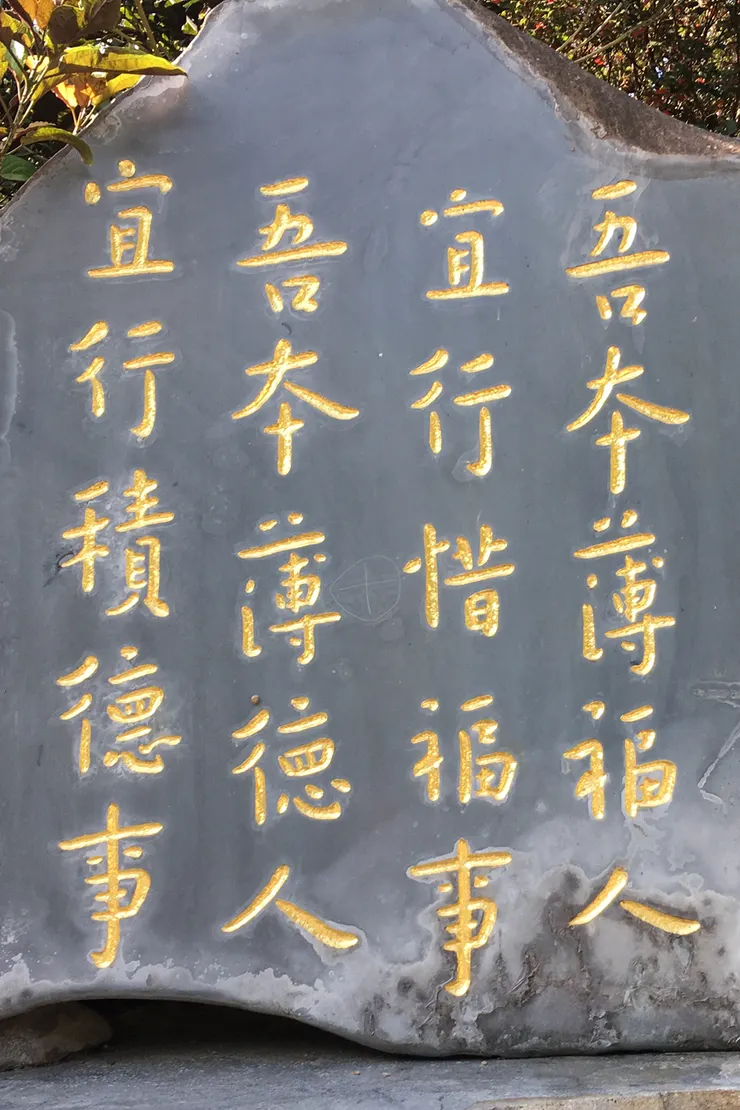 吾本薄福人
宜行惜福事
吾本薄德人
宜行積德事